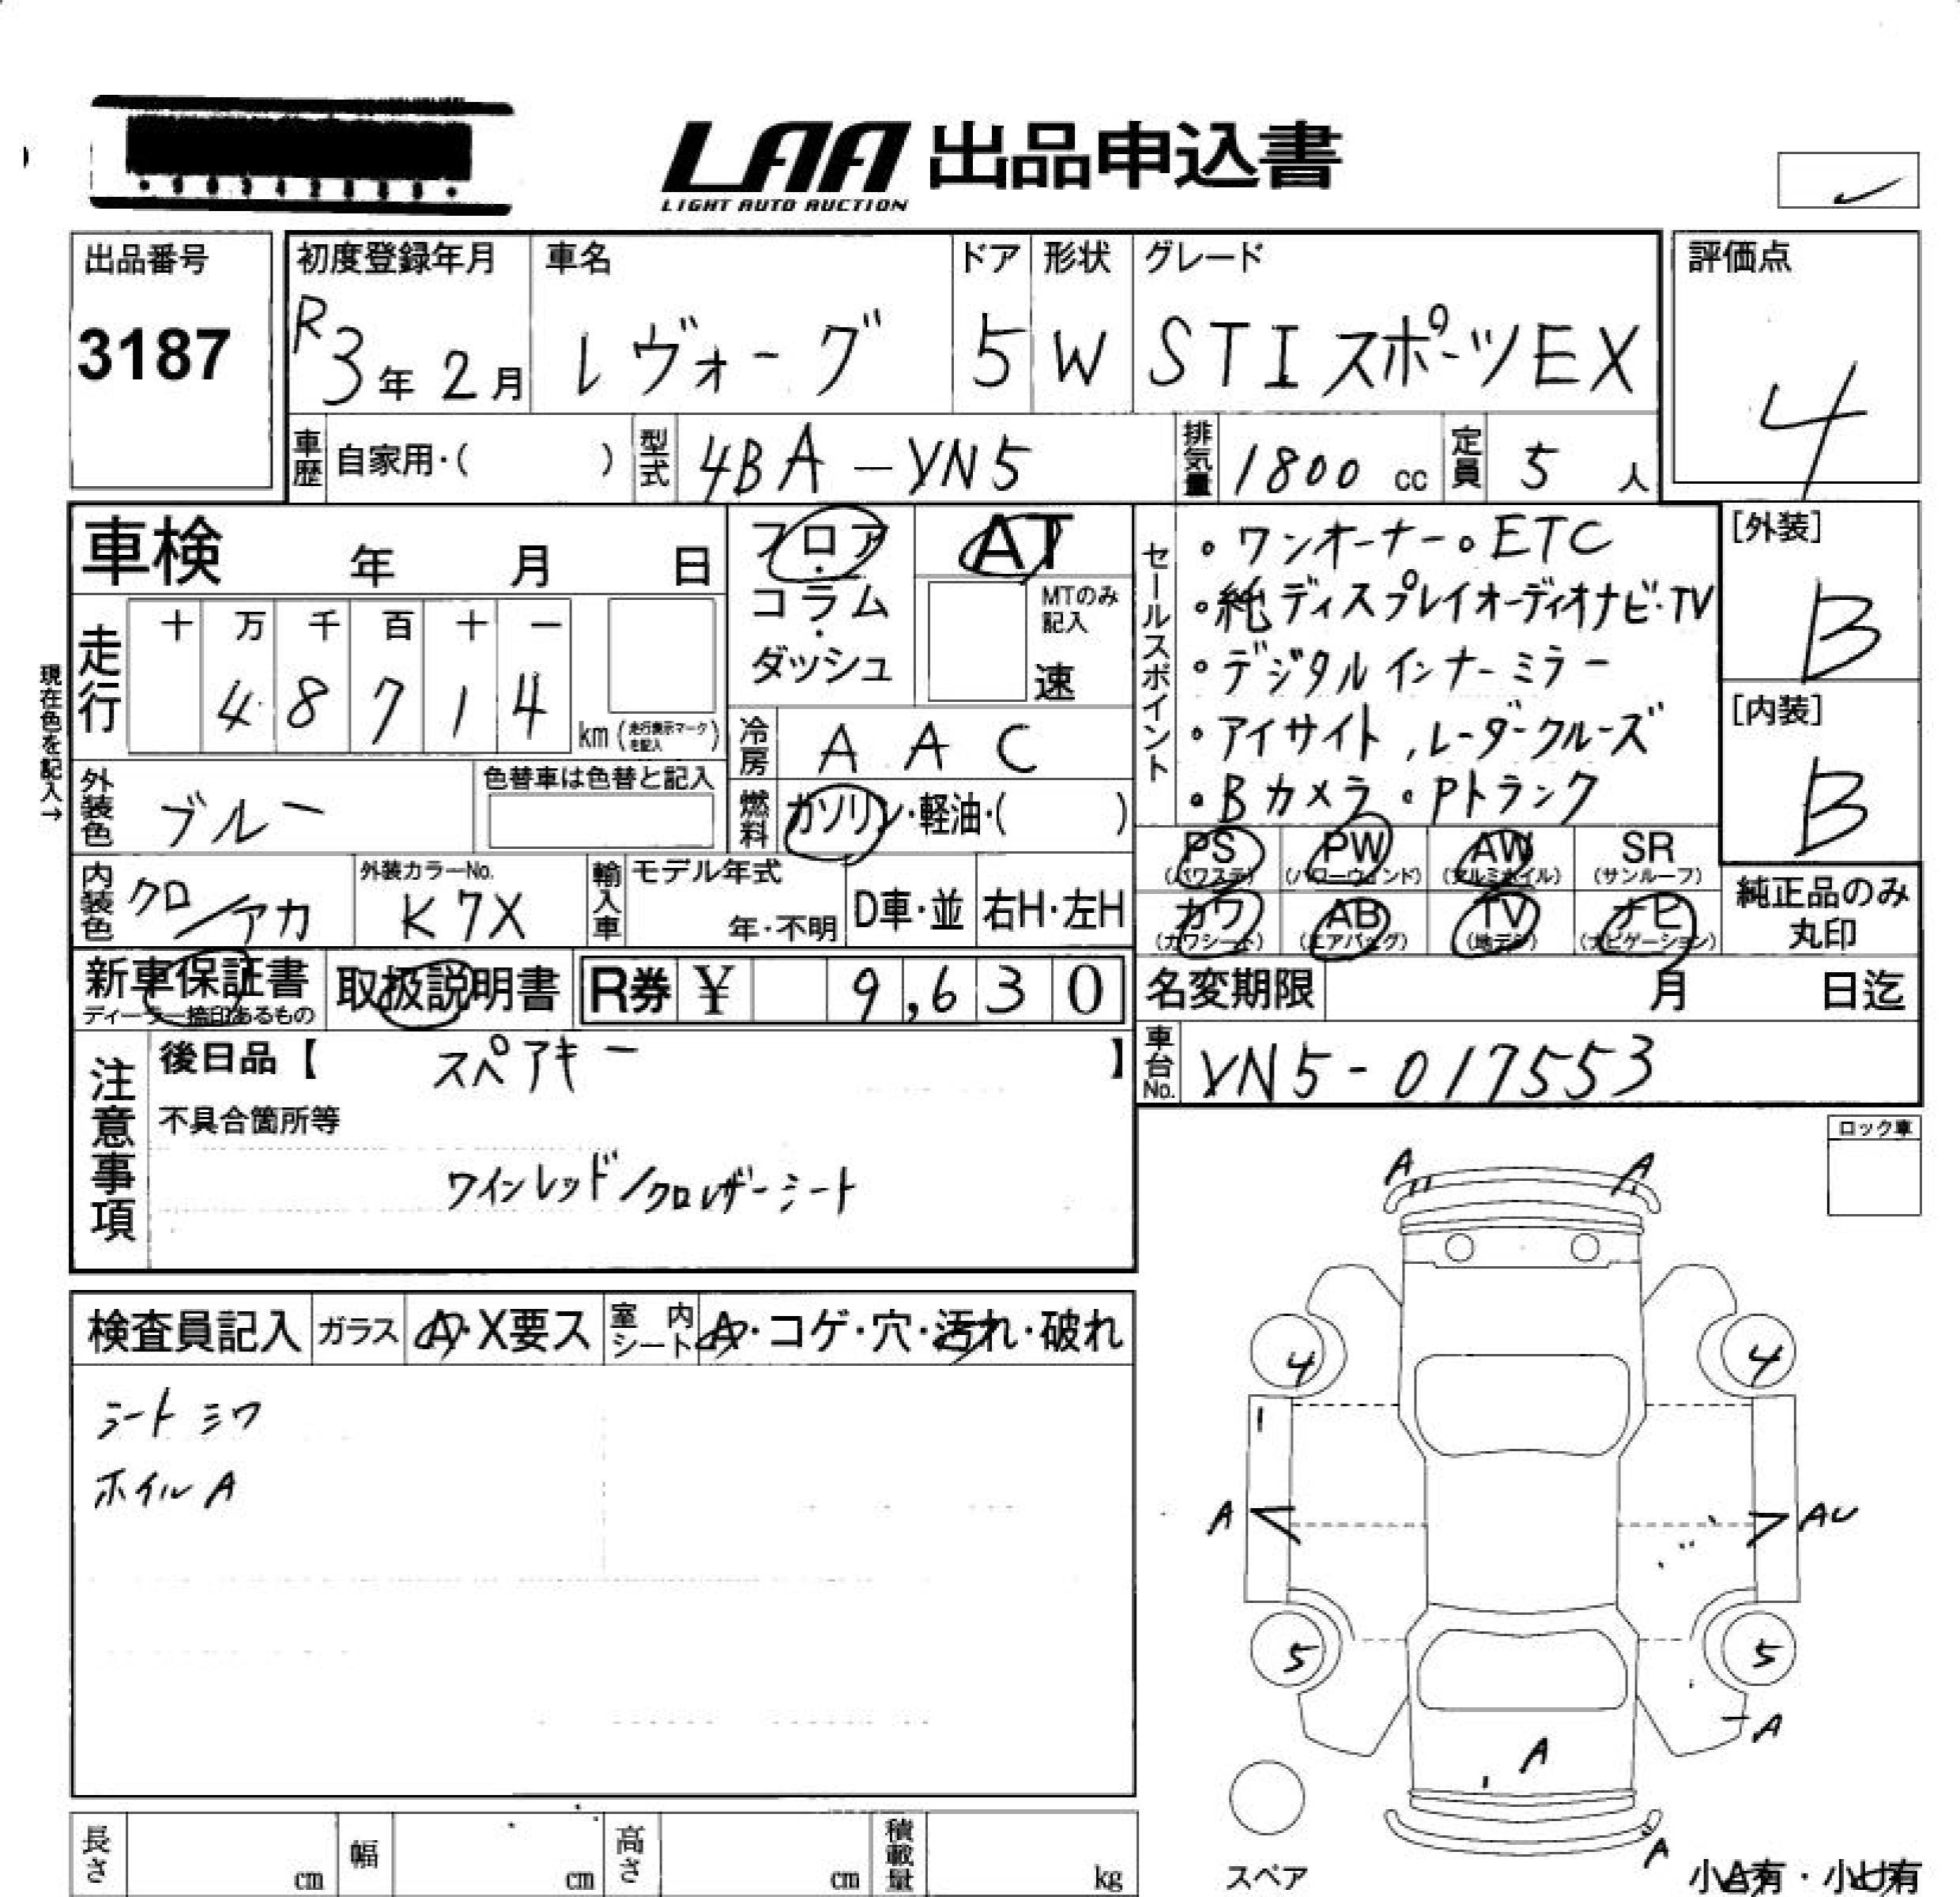 LAA 出品申込書
LIGHT AUTO AUCTION
出品番号
3187
初度登録年月
R3年2月
車名
レヴォーグ
ドア
5
形状
W
グレード
STIスポーツEX
評価点
4
車歴 自家用・( )
型式 4BA-VN5
排気量 1800 cc
定員 5 人
車検 年 月 日
現在色を記入→
走行
十 万 千 百 十 一
4 8 7 1 4
km(走行表示マークを記入)
フロア・コラム・ダッシュ
AT
MTのみ記入
速
冷房 AAC
燃料 ガソリン・軽油・( )
セールスポイント
・ワンオーナー・ETC
・純ディスプレイオーディオナビ・TV
・デジタルインナーミラー
・アイサイト,レーダークルーズ
・Bカメラ・Pトランク
[外装]
B
[内装]
B
外装色 ブルー
色替車は色替と記入
内装色 クロ/アカ
外装カラーNo.
K7X
輸入車
モデル年式
年・不明
D車・並
右H・左H
PS (パワステ)
PW (パワーウィンド)
AW (アルミホイル)
SR (サンルーフ)
カワ (カワシート)
AB (エアバッグ)
TV (地デジ)
ナビ (ナビゲーション)
純正品のみ
丸印
新車保証書
ディーラー捺印あるもの
取扱説明書
R券 ¥ 9,630
名変期限 月 日迄
車台No. VN5-017553
注意事項
後日品【 スペアキー 】
不具合箇所等
ワインレッド/クロレザーシート
ロック車
検査員記入
ガラス A・X要ス
室内シート A・コゲ・穴・汚れ・破れ
シートシワ
ホイルA
A A
4 4
A AU
5 5
A
A
A
スペア
小A有・小U有
長さ cm
幅 cm
高さ cm
積載量 kg